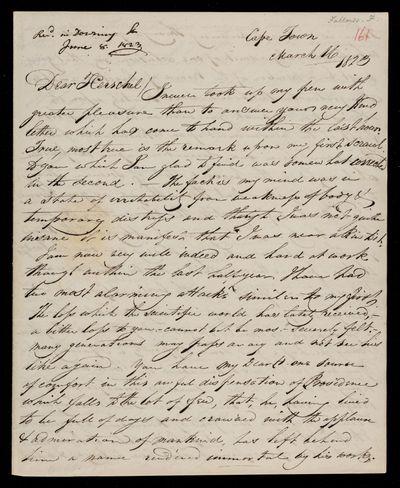 Fallows. F.
161
Recd. in Downing St
June 8. 1823
Cape Town
March 16 1823
Dear Herschel/
I never took up my pen with
greater pleasure than to answer your very kind
letter which has come to hand within the last hour.
True, most true is the remark upon my first scrawl
to you which I am glad to find was somewhat
in the second. — The fact is my mind was in
a state of irritability from weakness of body &
temporary distress and though I was not quite
insane it is manifest that I was near akin to it.
I am now very well indeed and hard at work
though within the last half year, I have had
two most alarming attacks similar to my first
The loss which the scientific world has lately received, —
a bitter loss to you — cannot but be most severely felt,
many generations may pass away and not see his
like again. You have my Dear Sir one source
of comfort in this awful dispensation of Providence
which falls to the lot of few, that he, having lived
to be full of days and crowned with the applause
& admiration of mankind, has left behind
him a name rendered immortal by his works.